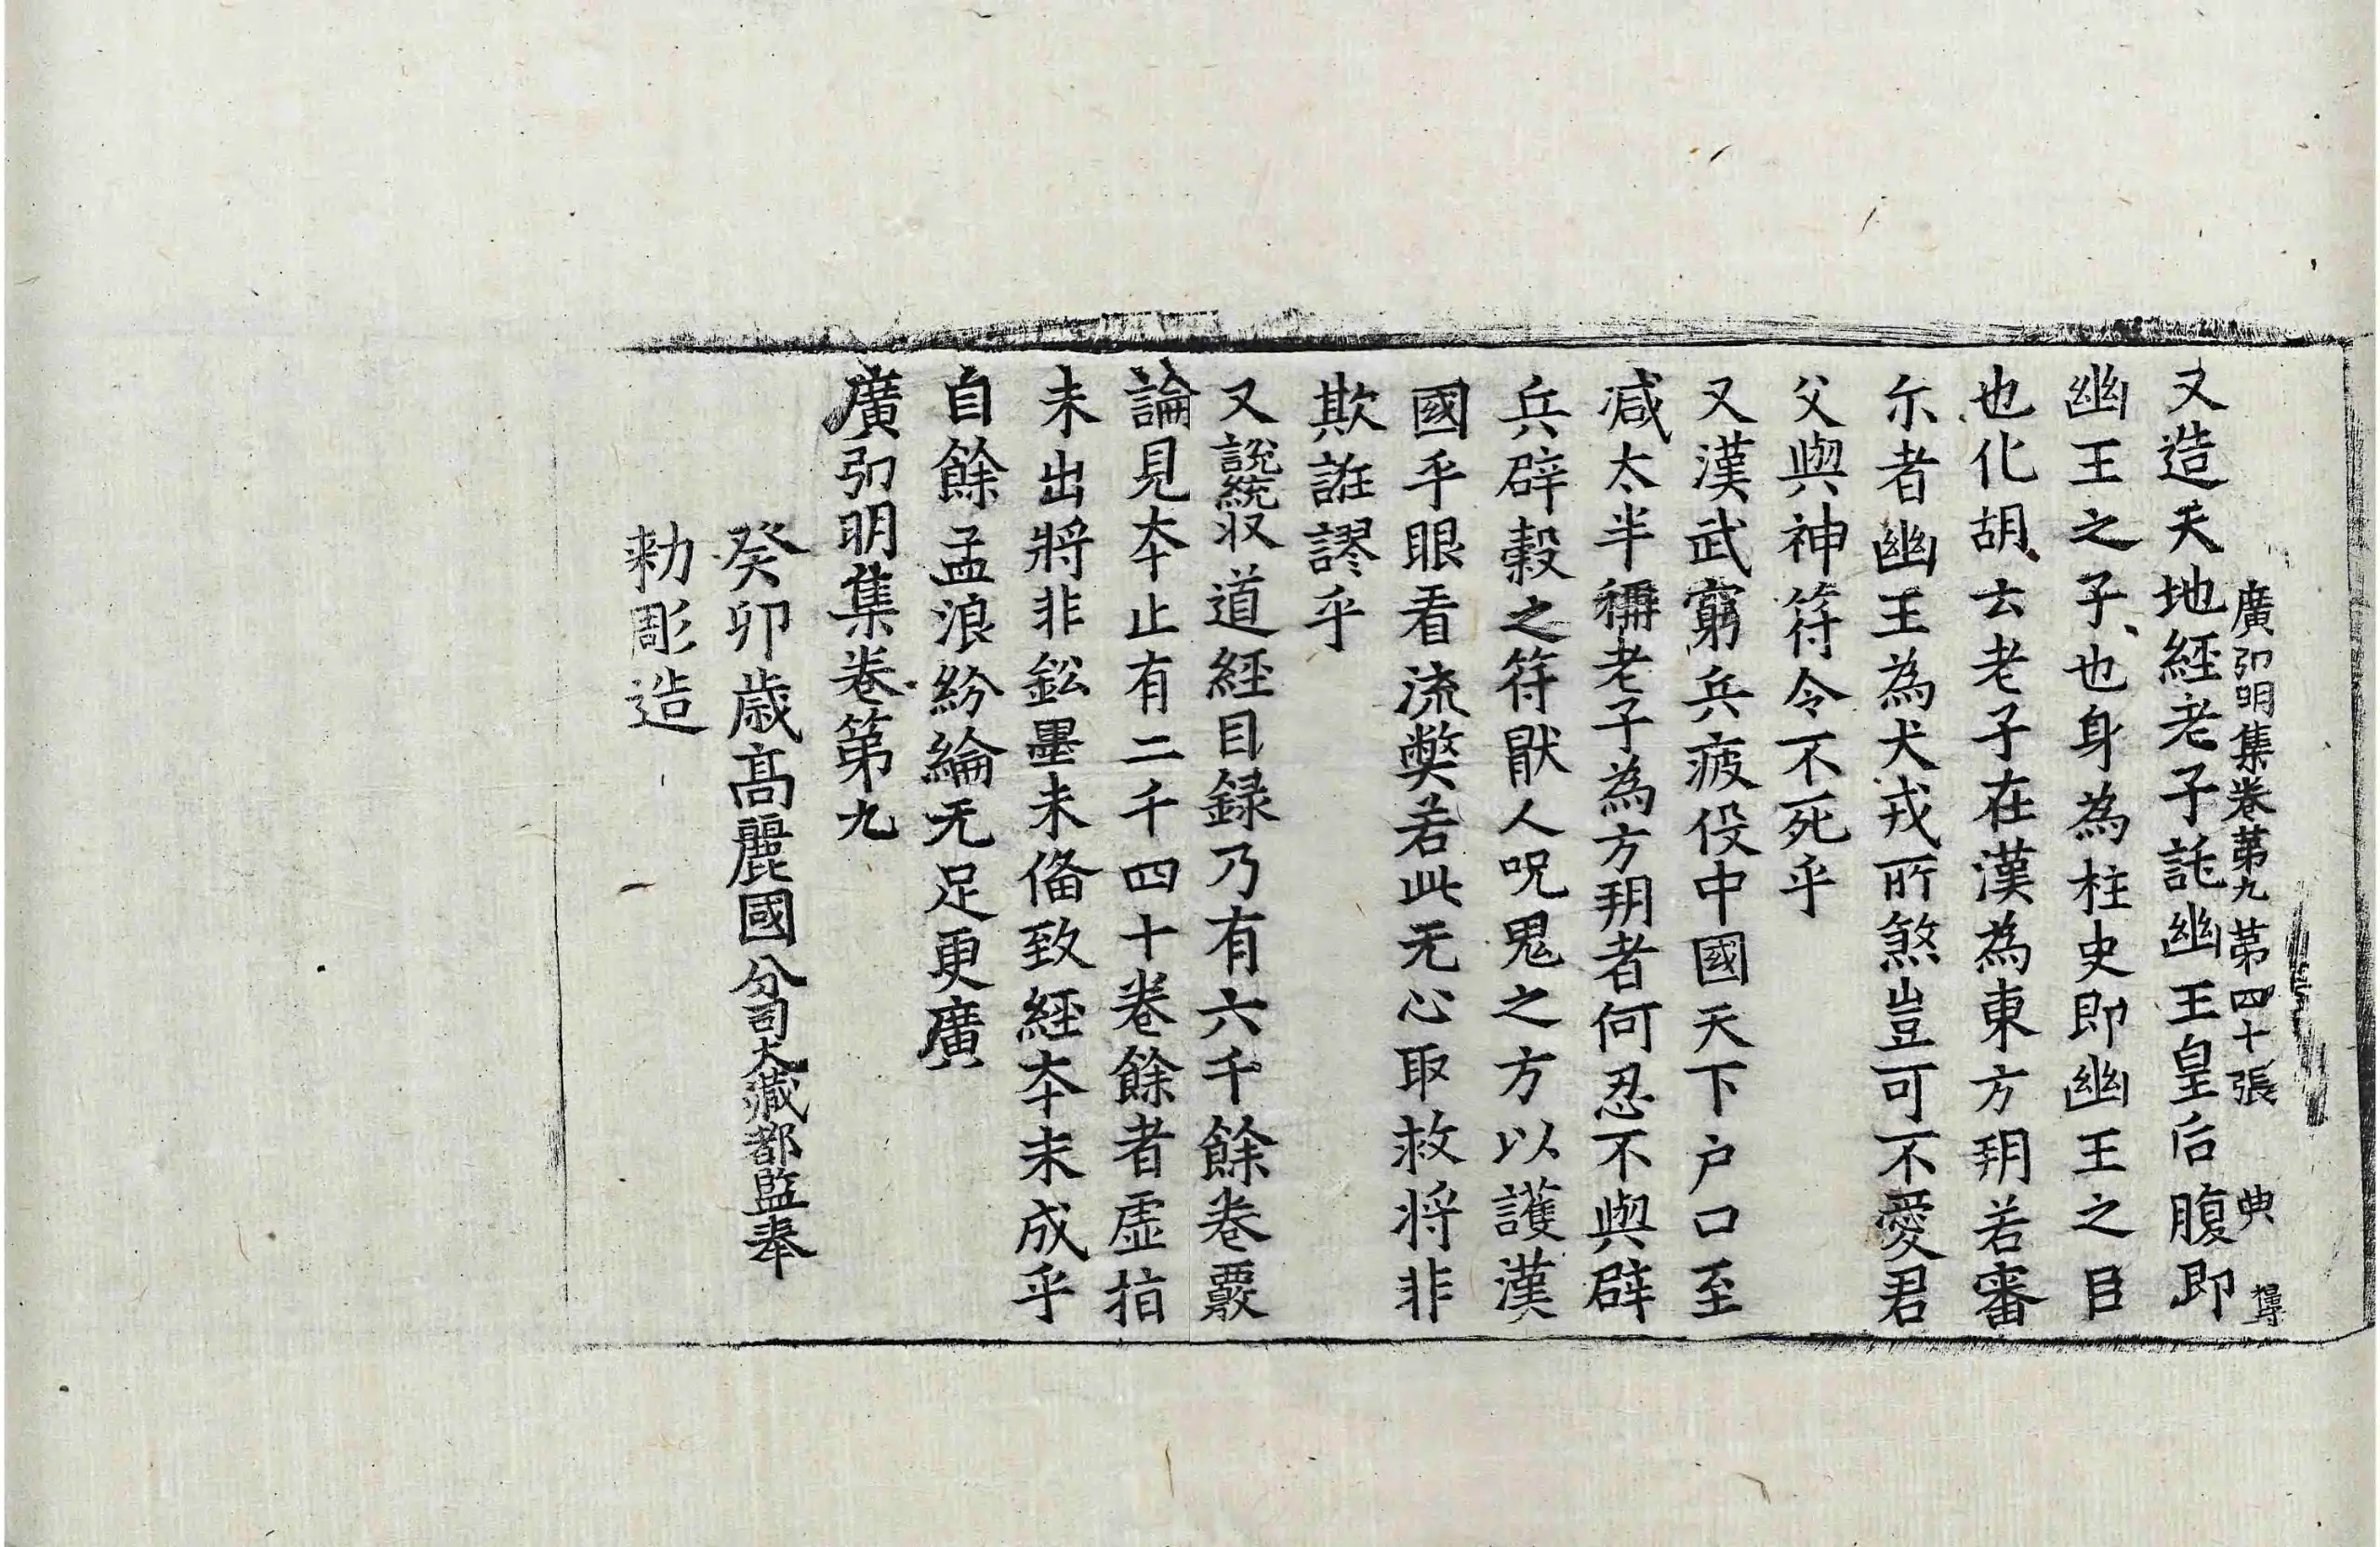 廣弘明集卷第九 第四十張 典
又造天地經老子託幽王皇后腹即
幽王之子也身為柱史即幽王之目
也化胡去老子在漢為東方玥若審
尒者幽王為犬戎所煞豈可不愛君
父與神符令不死乎
又漢武窮兵疲役中國天下户口至
减太半稱老子為方玥者何忍不與辟
兵辟穀之符猒人呪鬼之方以護漢
國乎眼看流弊若此无心取救将非
欺誑謬乎
又說統収道經目録乃有六千餘卷覈
論見夲止有二千四十卷餘者虛指
未出將非鈆墨未俻致經夲未成乎
自餘孟浪紛綸无足更廣
廣弘明集卷第九
癸卯歳髙麗國分司大藏都監奉
勑彫造